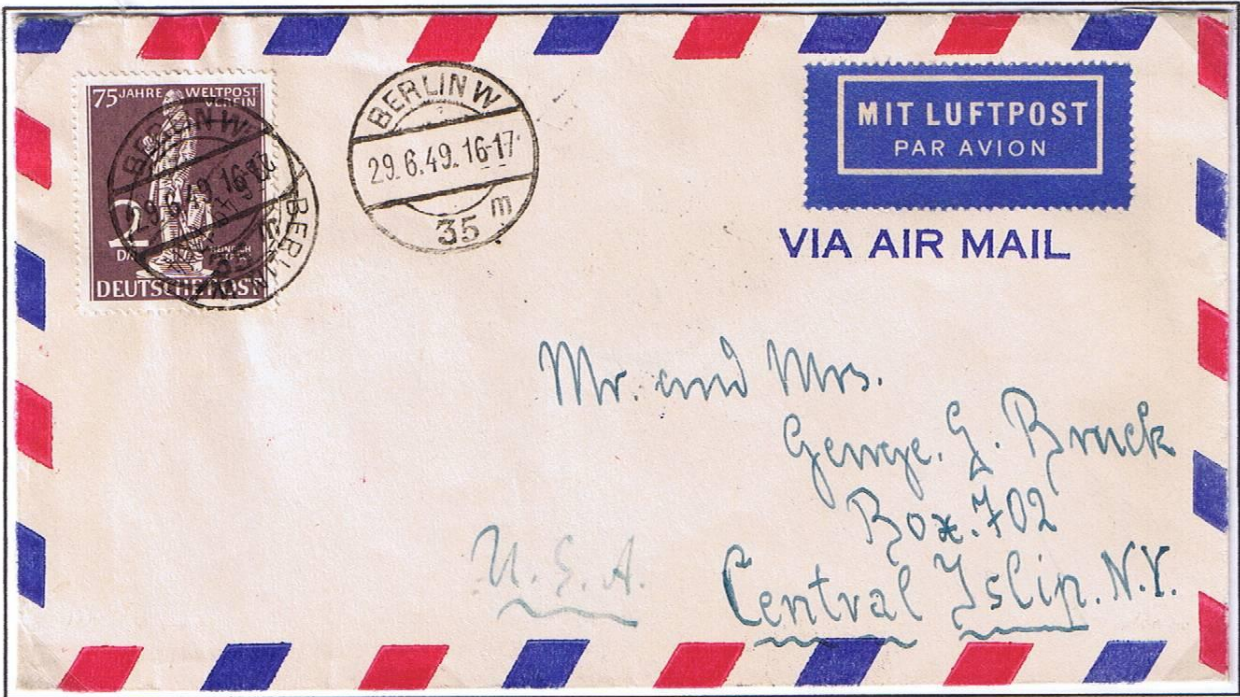 75 JAHRE WELTPOST
VEREIN
2
DEUTSCHE POST
BERLIN W
29.6.49.16-17
35
BERLIN
BERLIN W
29.6.49.16-17
35 m
MIT LUFTPOST
PAR AVION
VIA AIR MAIL
Mr. und Mrs.
George. G. Bruck
Box. 702
Central Islip. N.Y.
U.S.A.